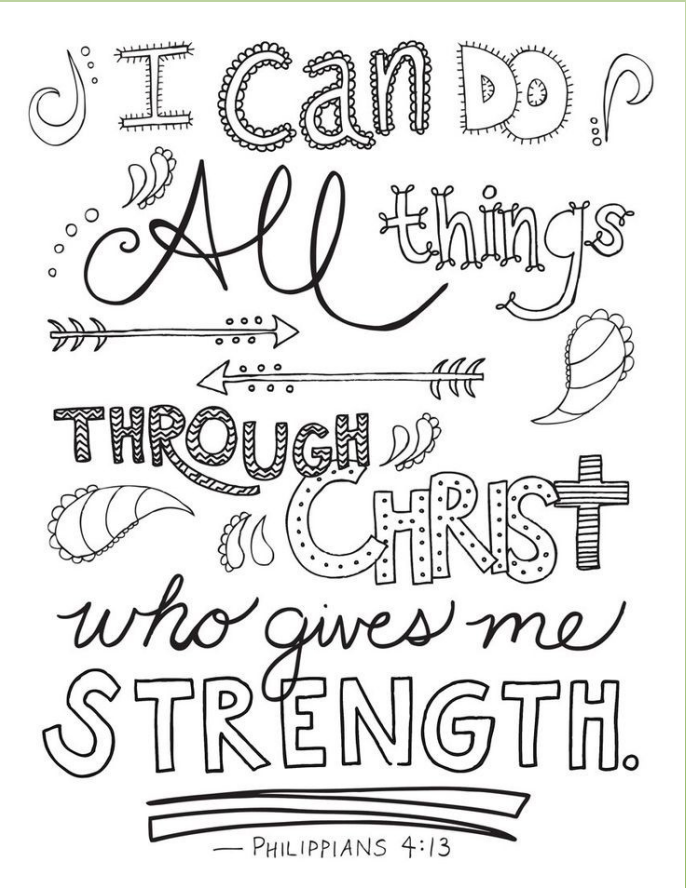 I Can DO
All things
THROUGH
CHRIST
who gives me
STRENGTH.
— PHILIPPIANS 4:13